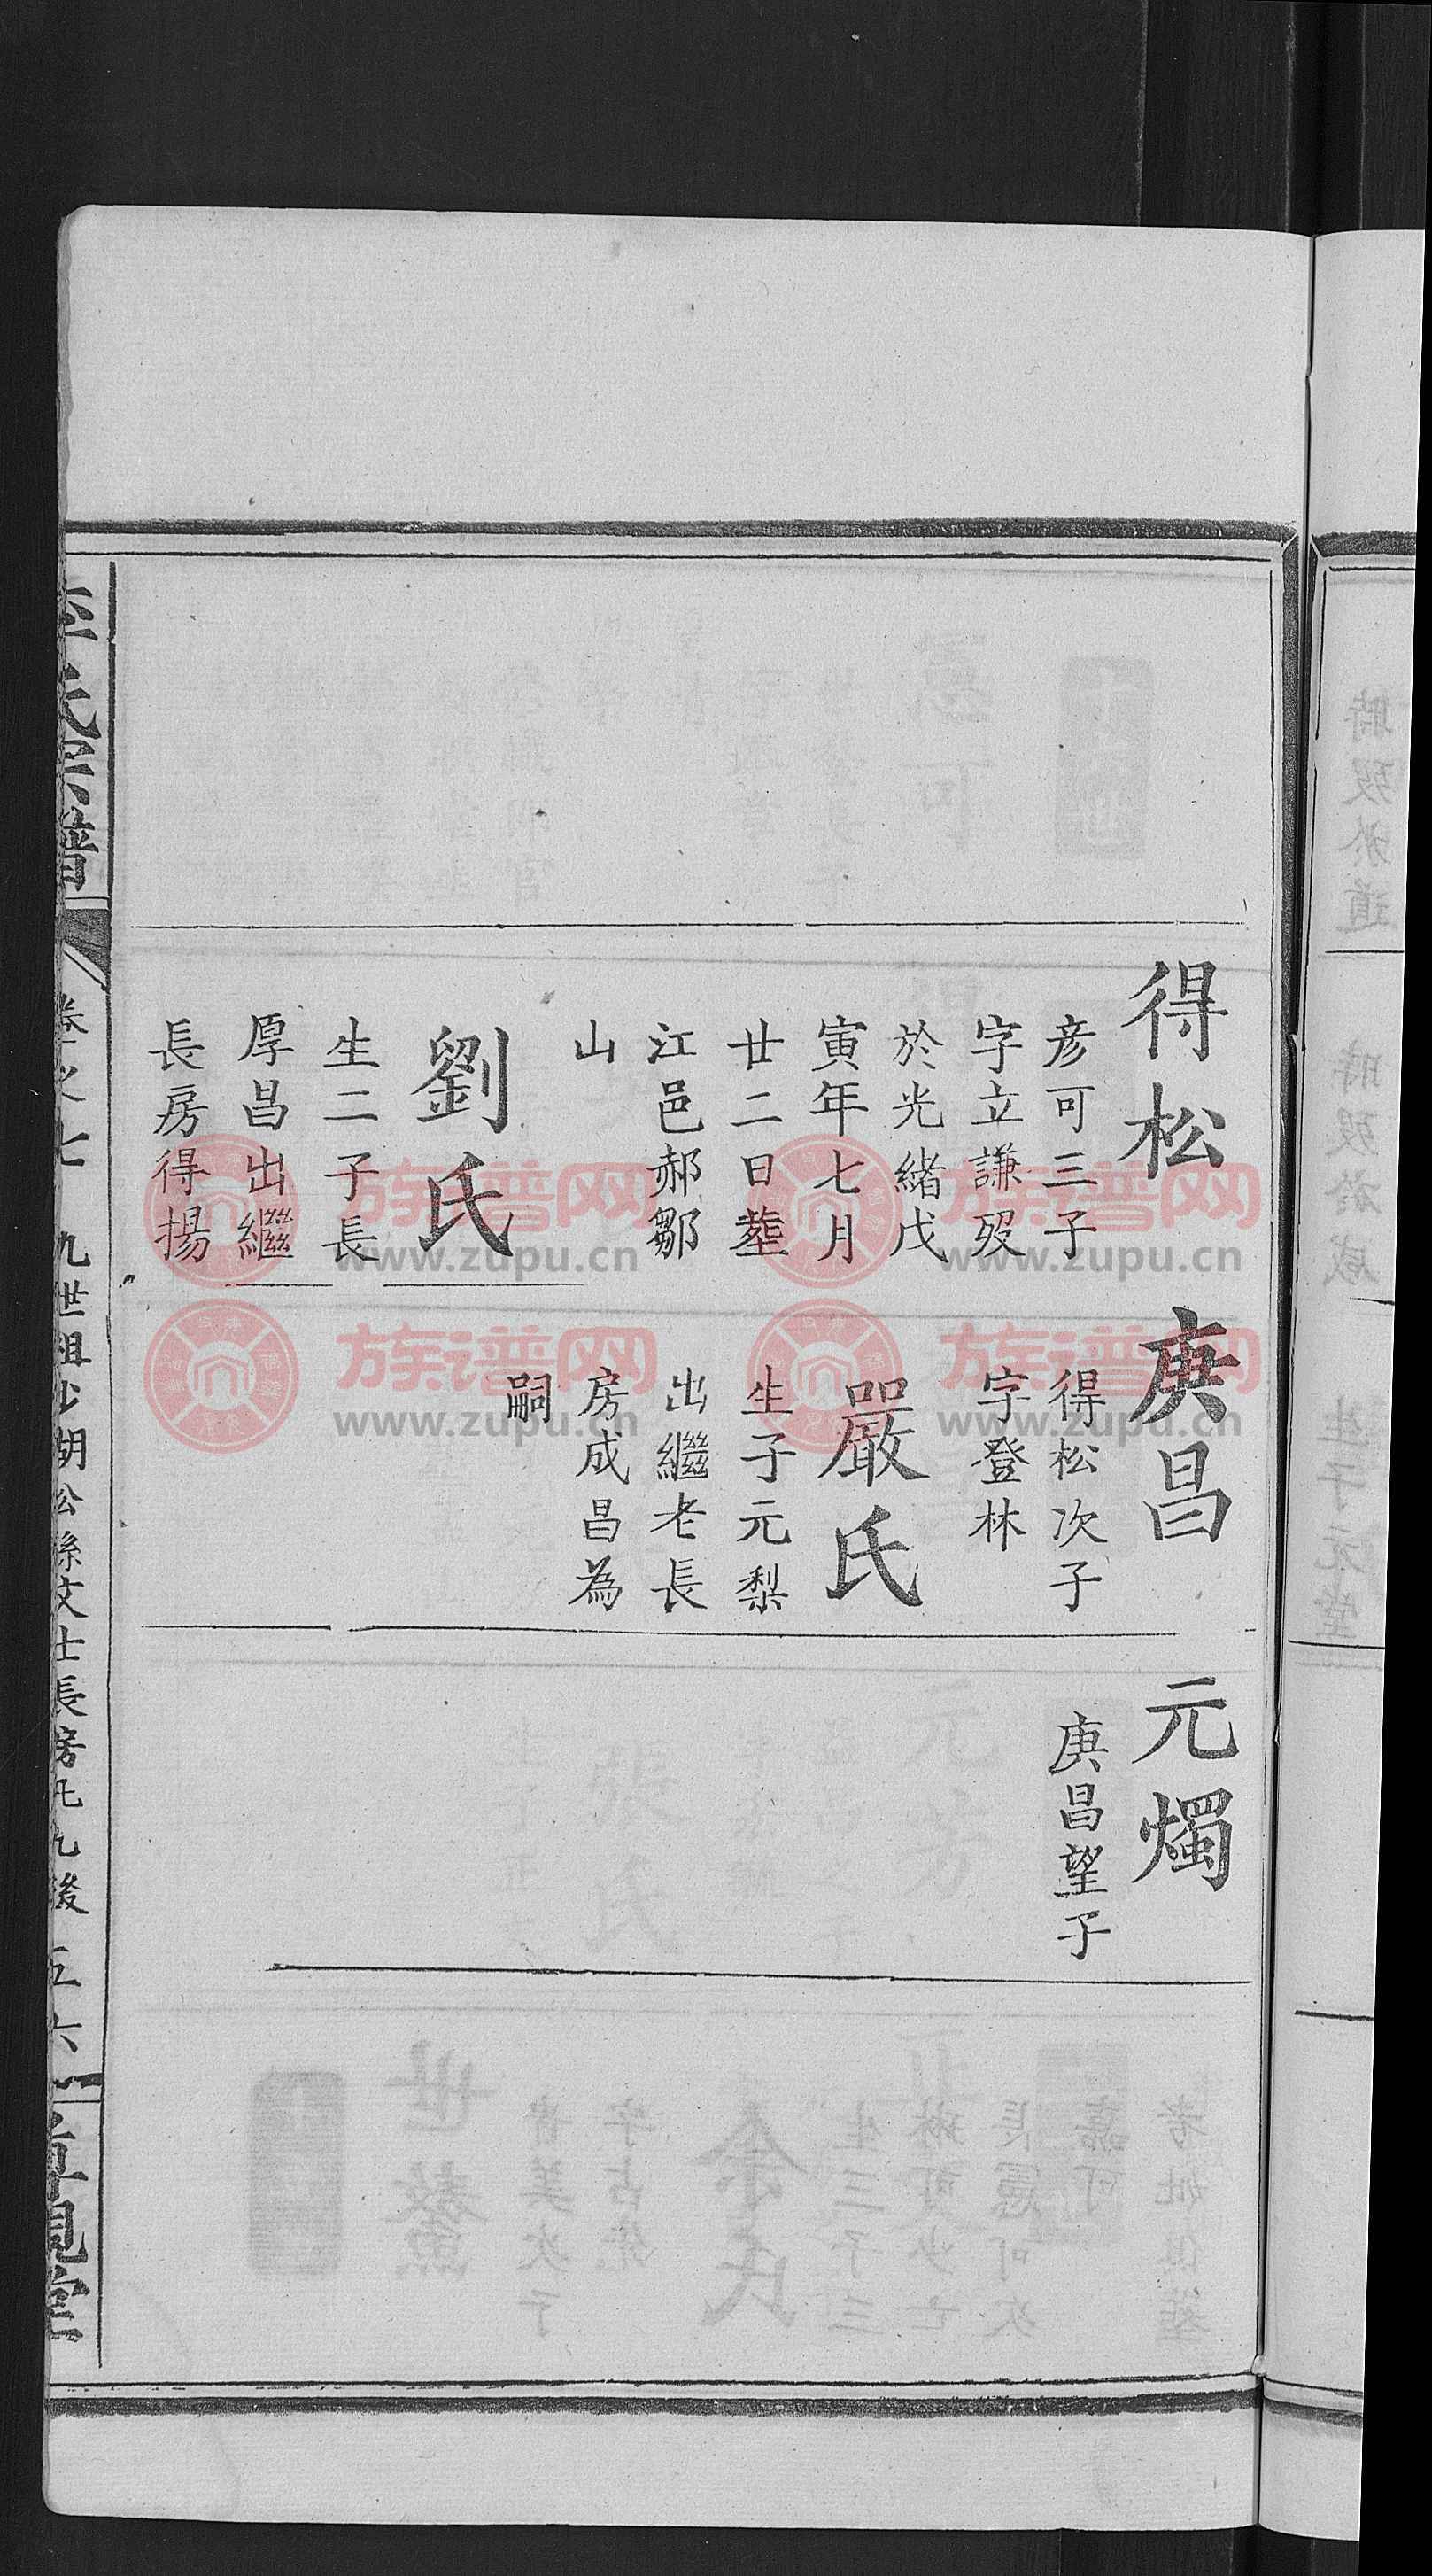 得松
彥可三子
字立謙歿
於光緒戊
寅年七月
廿二日塟
江邑郝鄒
山
劉氏
生二子長
厚昌出繼
長房得揚
庚昌
得松次子
字登林
嚴氏
生子元梨
出繼老長
房成昌為
嗣
元燭
庚昌望子
氏宗譜
卷之七
九世祖少湖公孫文士長房九九後
五六
族谱网
www.zupu.cn
族谱网
www.zupu.cn
族谱网
www.zupu.cn
族谱网
www.zupu.cn